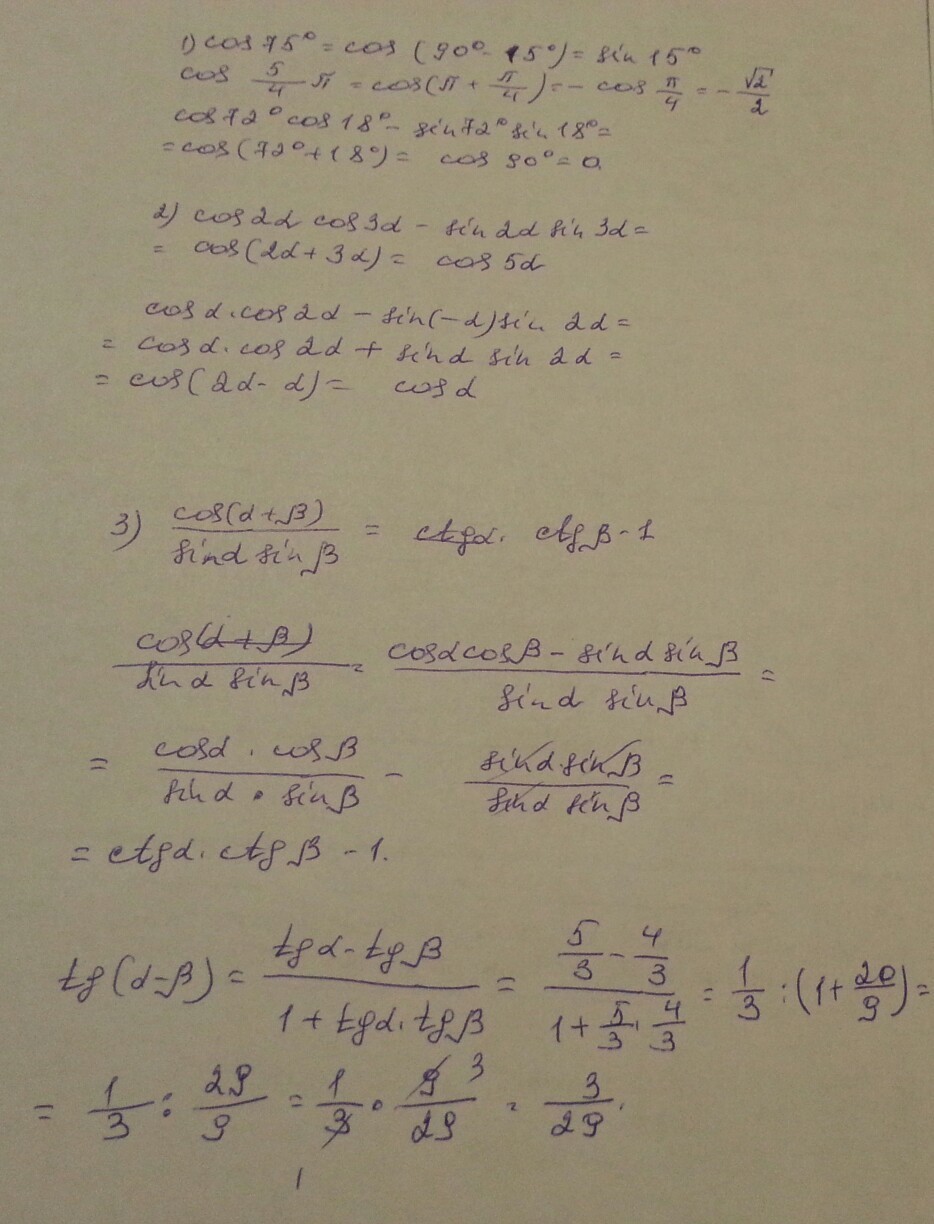 1) cos 75° = cos (90° - 15°) = sin 15°
cos 5/4 π = cos(π + π/4) = - cos π/4 = - √2/2
cos 72° cos 18° - sin 72° sin 18° =
= cos(72° + 18°) = cos 90° = 0.
2) cos 2α cos 3α - sin 2α sin 3α =
= cos(2α + 3α) = cos 5α
cos α · cos 2α - sin(-α) sin 2α =
= cos α · cos 2α + sin α sin 2α =
= cos(2α - α) = cos α
3) cos(α + β) / sin α sin β = ctg α · ctg β - 1
cos(α + β) / sin α sin β = cos α cos β - sin α sin β / sin α sin β =
= cos α · cos β / sin α · sin β - sin α · sin β / sin α sin β =
= ctg α · ctg β - 1.
tg (α - β) = tg α - tg β / 1 + tg α · tg β = 5/3 - 4/3 / 1 + 5/3 · 4/3 = 1/3 : (1 + 20/9) =
= 1/3 : 29/9 = 1/3 · 9 3/29 = 3/29.